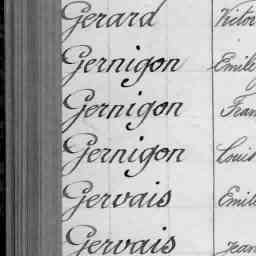 Gerard Victor
Gernigon Emile
Gernigon Fran
Gernigon Louis
Gervais Emile
Gervais Jean